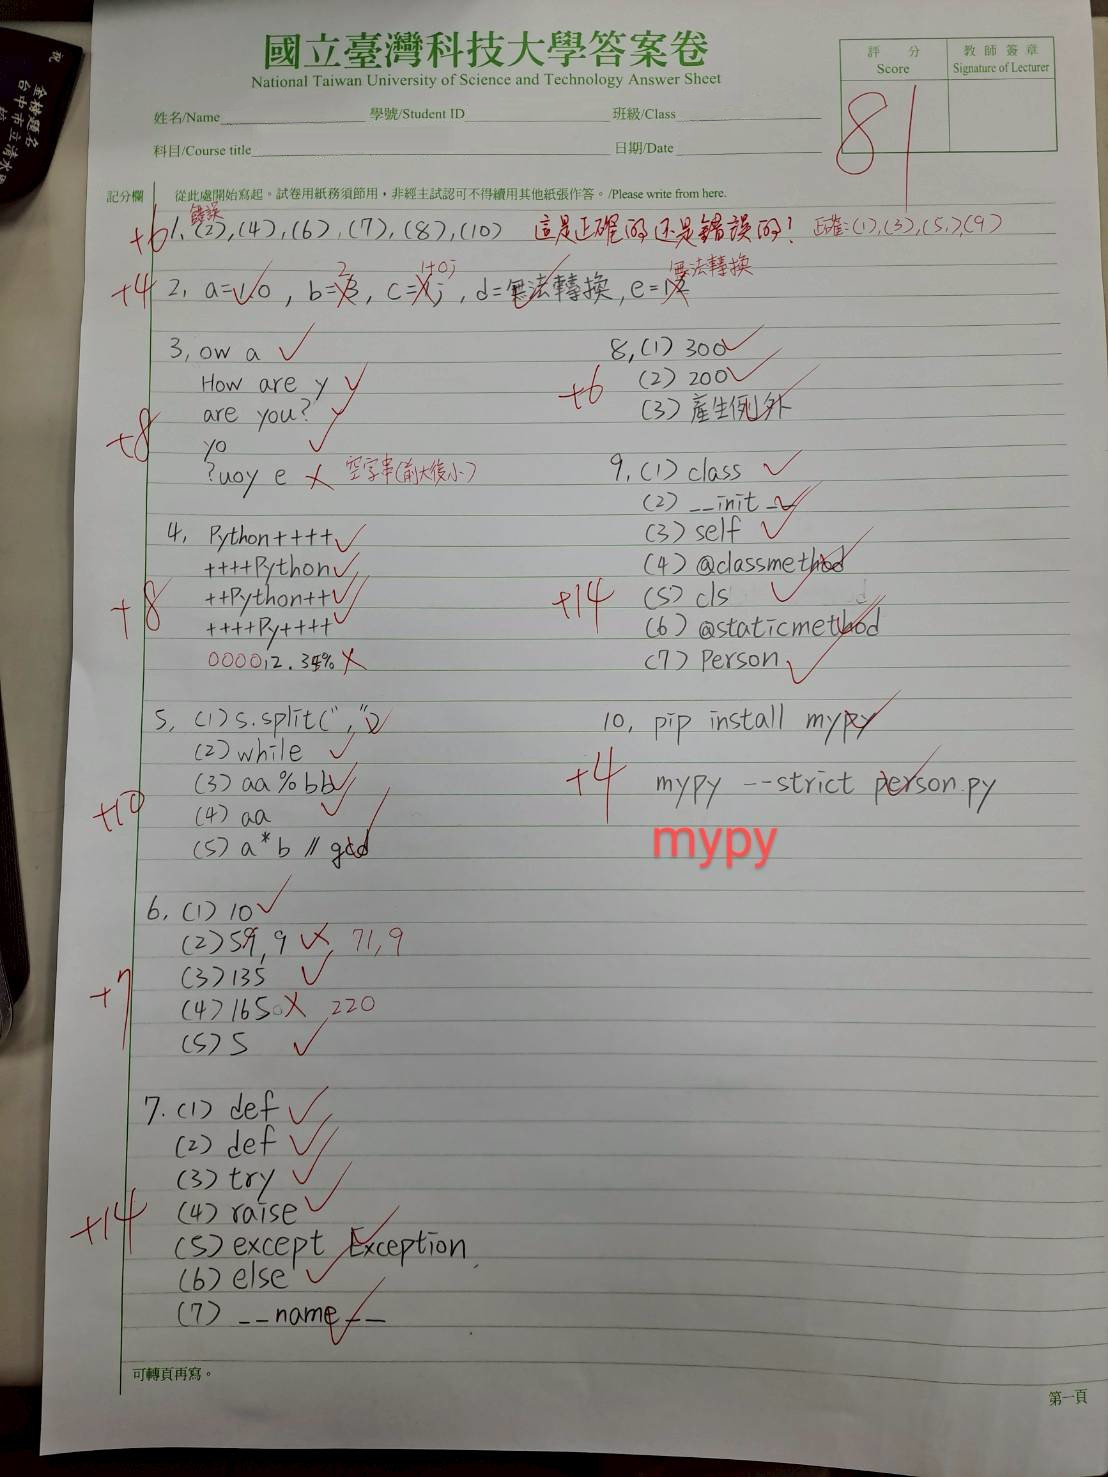 國立臺灣科技大學答案卷
National Taiwan University of Science and Technology Answer Sheet
評 分
Score
教 師 簽 章
Signature of Lecturer
81
姓名/Name 學號/Student ID 班級/Class
科目/Course title 日期/Date
記分欄 從此處開始寫起。試卷用紙務須節用,非經主試認可不得續用其他紙張作答。/Please write from here.
錯誤
+6 1. (2),(4),(6),(7),(8),(10) 這是正確的还是錯誤的! 正確:(1),(3),(5),(9)
2 1+0j 無法轉換
+4 2, a=1.0 , b=3, c=1j , d=無法轉換, e=12
3, ow a
How are y
are you?
+8
yo
?uoy e 空字串(前大後小)
4, Python++++
++++Python
+8 ++Python++
++++Py++++
000012.35%
5, (1) s.split(",")
(2) while
(3) aa % bb
+10 (4) aa
(5) a*b // gcd
6, (1) 10
(2) 59, 9 71,9
(3) 135
+7 (4) 1650 220
(5) 5
7. (1) def
(2) def
(3) try
+14 (4) raise
(5) except Exception
(6) else
(7) __name__
8, (1) 300
+6 (2) 200
(3) 產生例外
9, (1) class
(2) __init__
(3) self
(4) @classmethod
+14 (5) cls
(6) @staticmethod
(7) Person
10, pip install mypy
+4 mypy --strict person.py
mypy
可轉頁再寫。
第一頁
金榜題名
台中市立清水